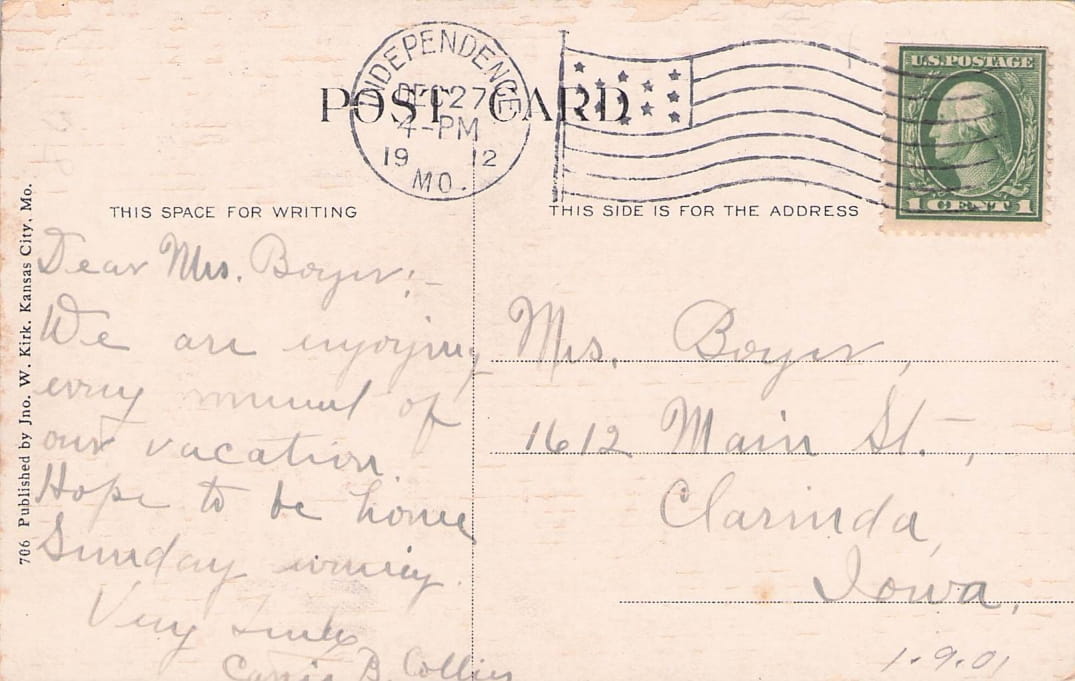 POST CARD
INDEPENDENCE
DEC 27
4-PM
19 12
MO.
U.S. POSTAGE
1 CENT 1
THIS SPACE FOR WRITING
THIS SIDE IS FOR THE ADDRESS
706 Published by Jno. W. Kirk, Kansas City, Mo.
Dear Mrs. Boyer:-
We are enjoying
every minute of
our vacation.
Hope to be home
Sunday evening.
Very Truly
Carrie B. Collier
Mrs. Boyer,
1612 Main St.-,
Clarinda,
Iowa.
1.9.01